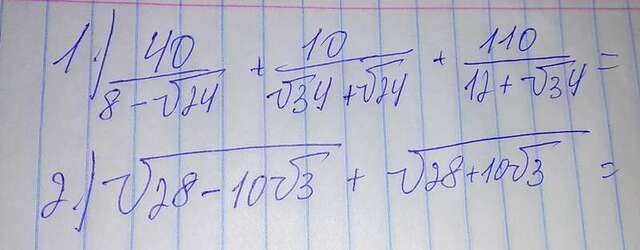 1.) 40/(8 - √24) + 10/(√34 + √24) + 110/(12 + √34) =
2.) √(28 - 10√3) + √(28 + 10√3) =